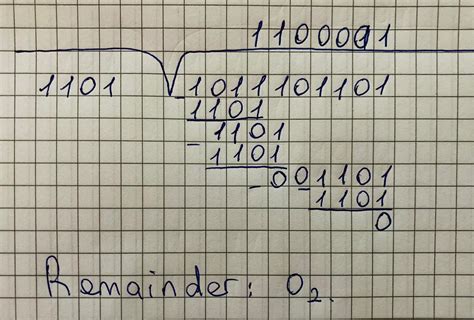 1100001
1101 10111101101
- 1101
1101
- 1101
- 001101
- 1101
0
Remainder: 0₂.